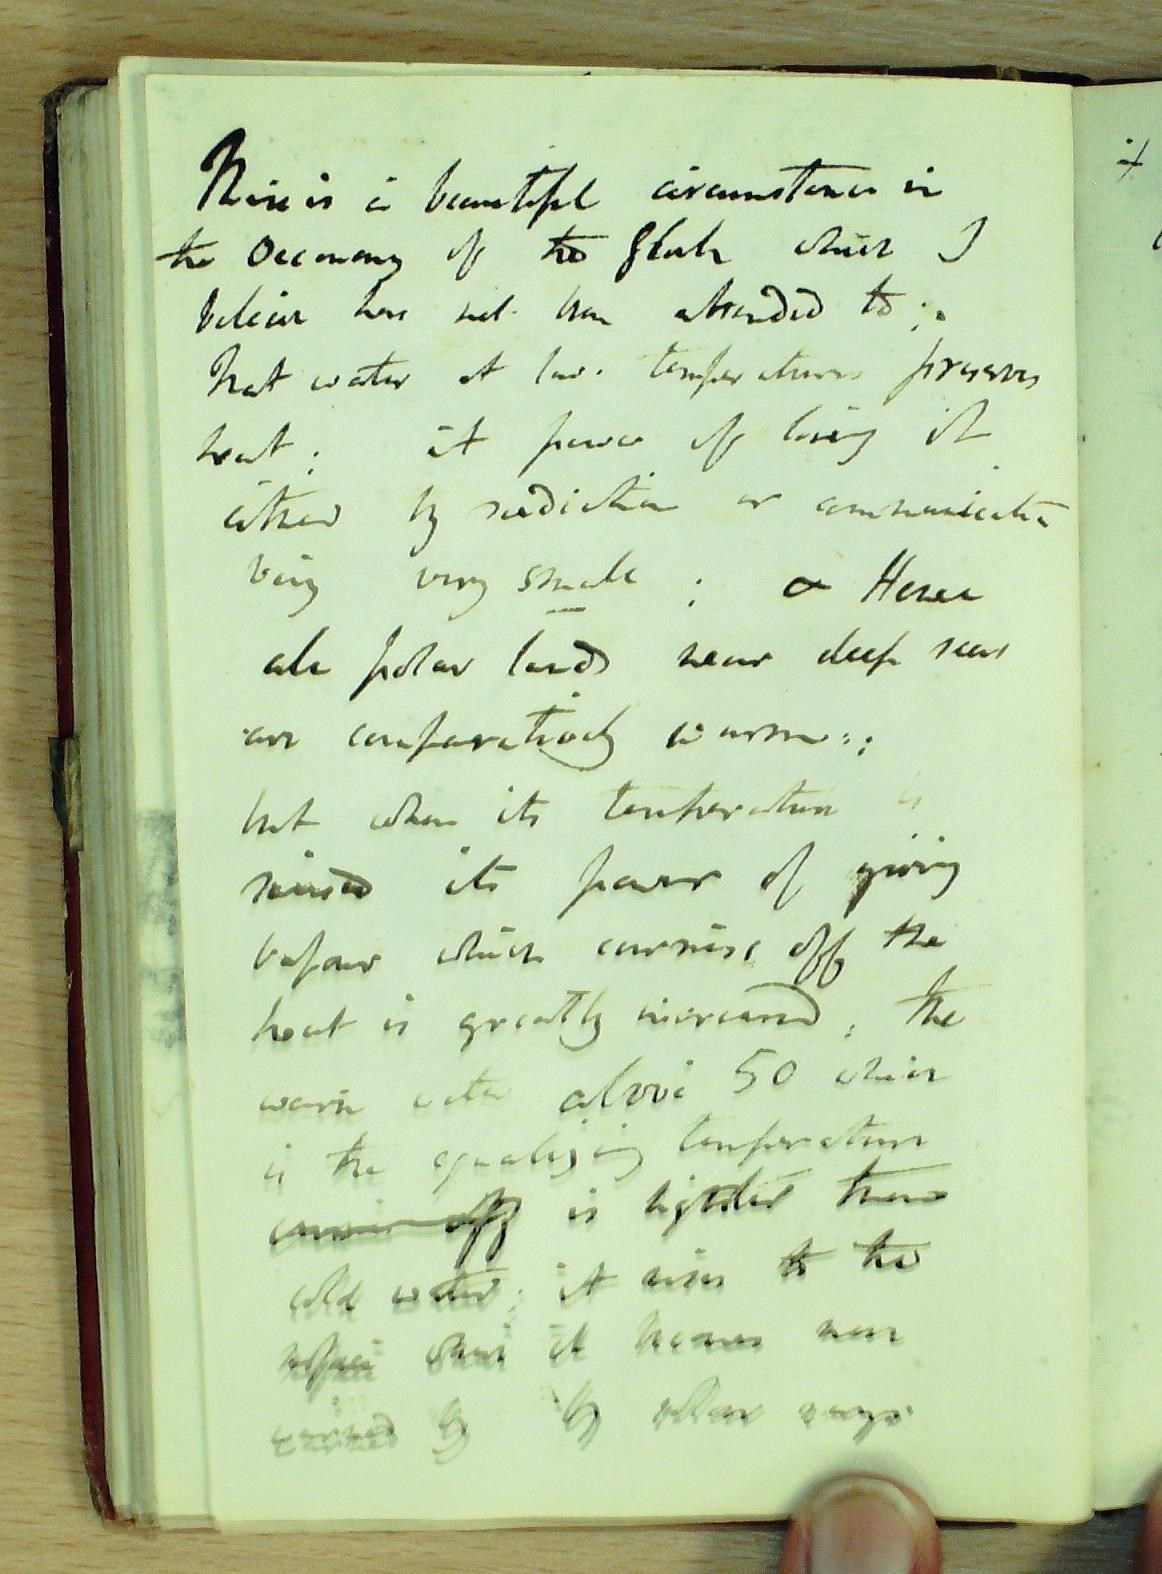 There is a beautiful circumstance in
the Oeconomy of the Globe which I
believe has not been attended to;
that water at low temperatures preserves
heat; it power of losing it
either by radiation or communication
being very small; & Hence
all polar lands near deep seas
are comparatively warm;
but when its temperature is
raised its power of giving
vapour which carries off the
heat is greatly increased, the
warm water above 50 which
is the equalizing temperature
carries off is lighter than
cold water; it rises to the
surface where it becomes more
warmed by by solar rays
it